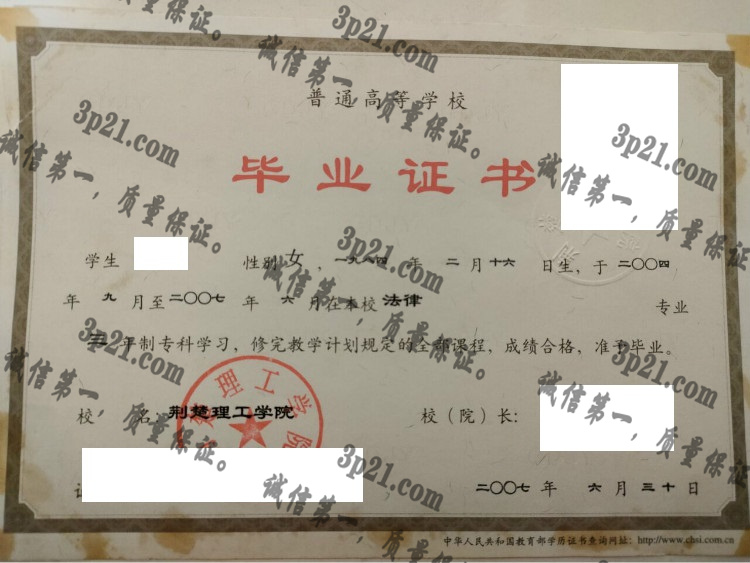 普通高等学校
毕业证书
学生 性别 女 ，一九八四 年 二 月 十六 日生，于 二〇〇四
年 九 月至 二〇〇七 年 六 月在本校 法律 专业
三 年制专科学习，修完教学计划规定的全部课程，成绩合格，准予毕业。
校 名：荆楚理工学院 校（院）长：
二〇〇七 年 六 月 三十 日
中华人民共和国教育部学历证书查询网址：http://www.chsi.com.cn
理工学院
3p21.com
诚信第一，质量保证。
3p21.com
诚信第一，质量保证。
3p21.com
诚信第一，质量保证。
3p21.com
诚信第一，质量保证。
3p21.com
诚信第一，质量保证。
3p21.com
诚信第一，质量保证。
3p21.com
诚信第一，质量保证。